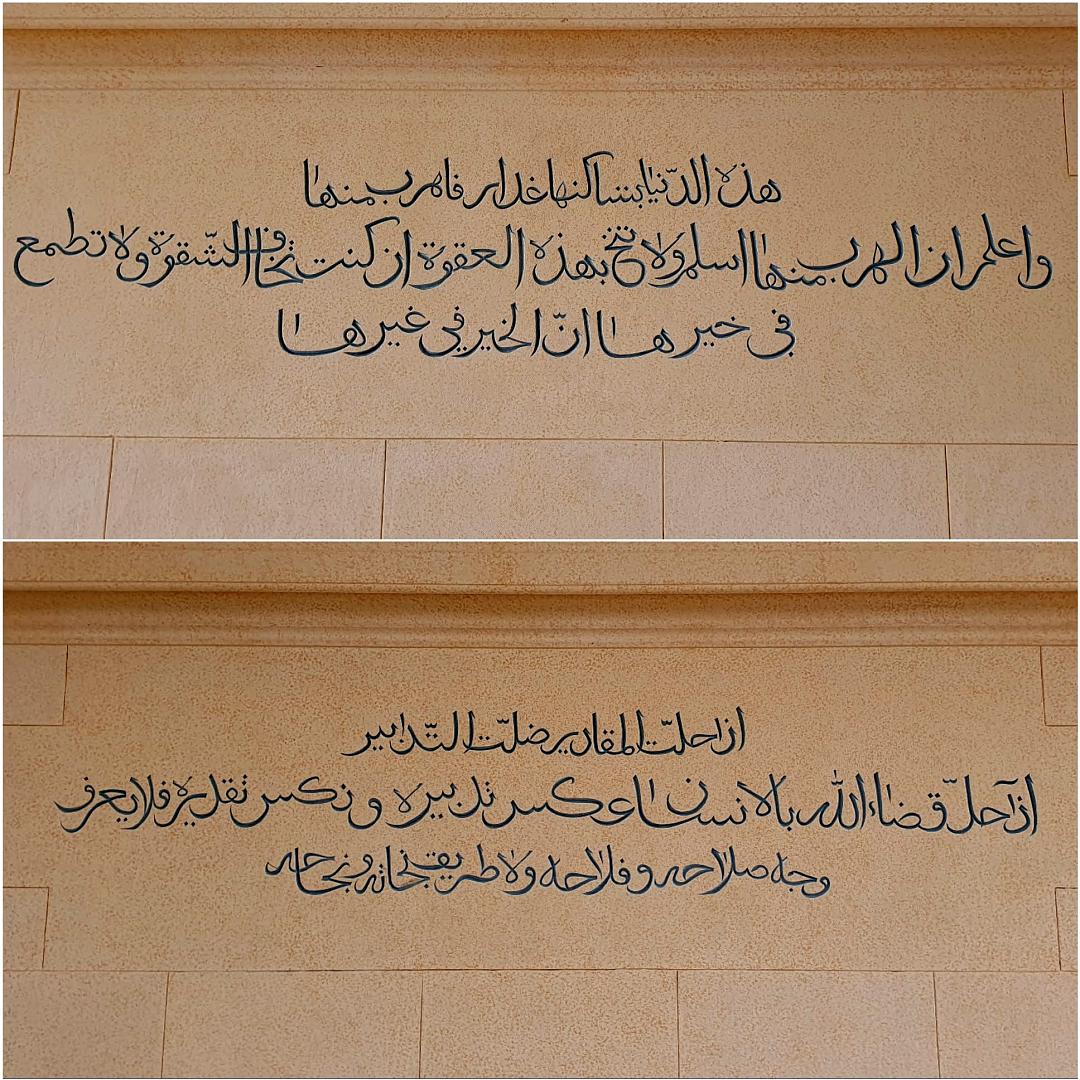 هذه الدّنيا بساكنها غدار فاهرب منها
واعلم ان الهرب منها اسلم ولا تنخ بهذه العقوة ان كنت تخاف الشقوة ولا تطمع
في خيرها انّ الخير في غيرها
اذا حلّت المقادير ضلّت التّدابير
اذا حلّ قضاء الله بالانسان عكس تدبيره ونكس تقديره فلا يعرف
وجه صلاحه وفلاحه ولا طريق نجاته ونجاحه